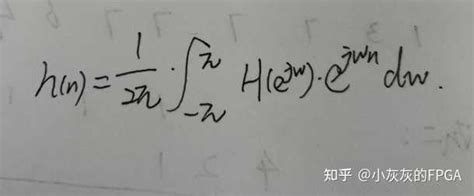 h(n) = \frac{1}{2π} · \int_{-π}^{π} H(e^{jw}) · e^{jwn} dw.
知乎 @小灰灰的FPGA